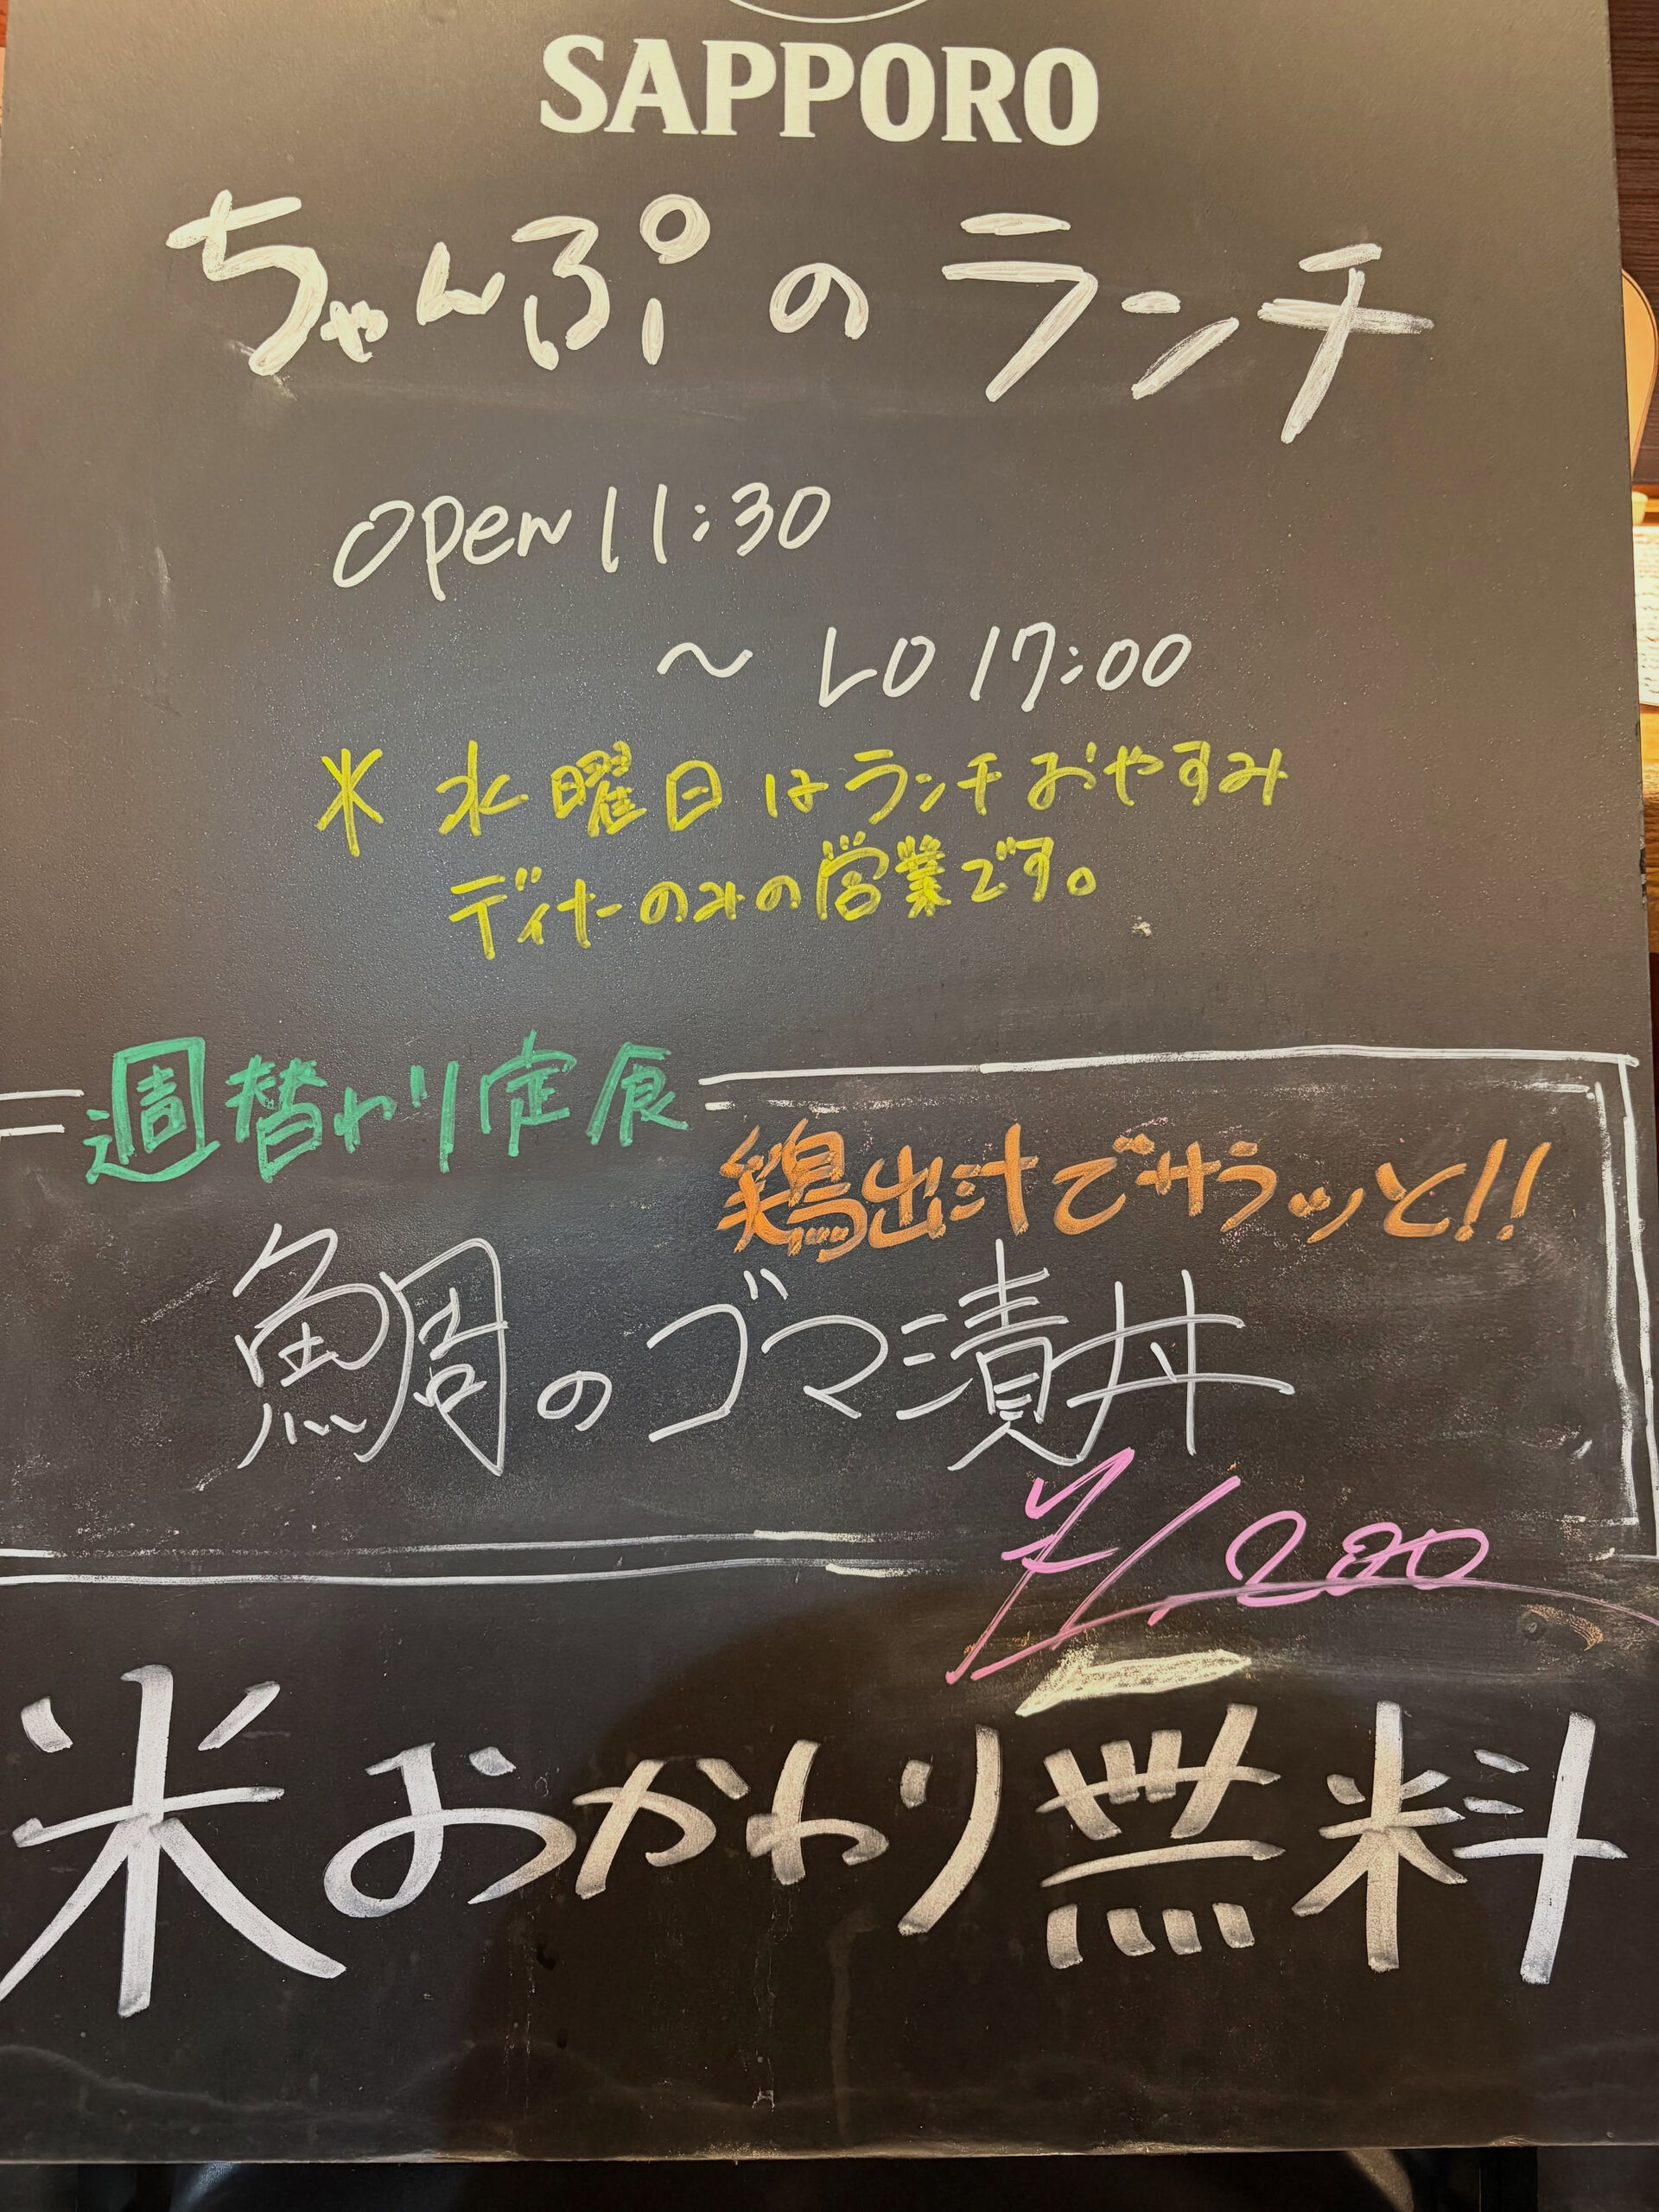 SAPPORO
ちゃんぷのランチ
open 11:30
～ LO 17:00
* 水曜日はランチおやすみ
ディナーのみの営業です。
週替わり定食
鶏出汁でサラッと!!
鯛のゴマ漬丼
¥1,200
米おかわり無料